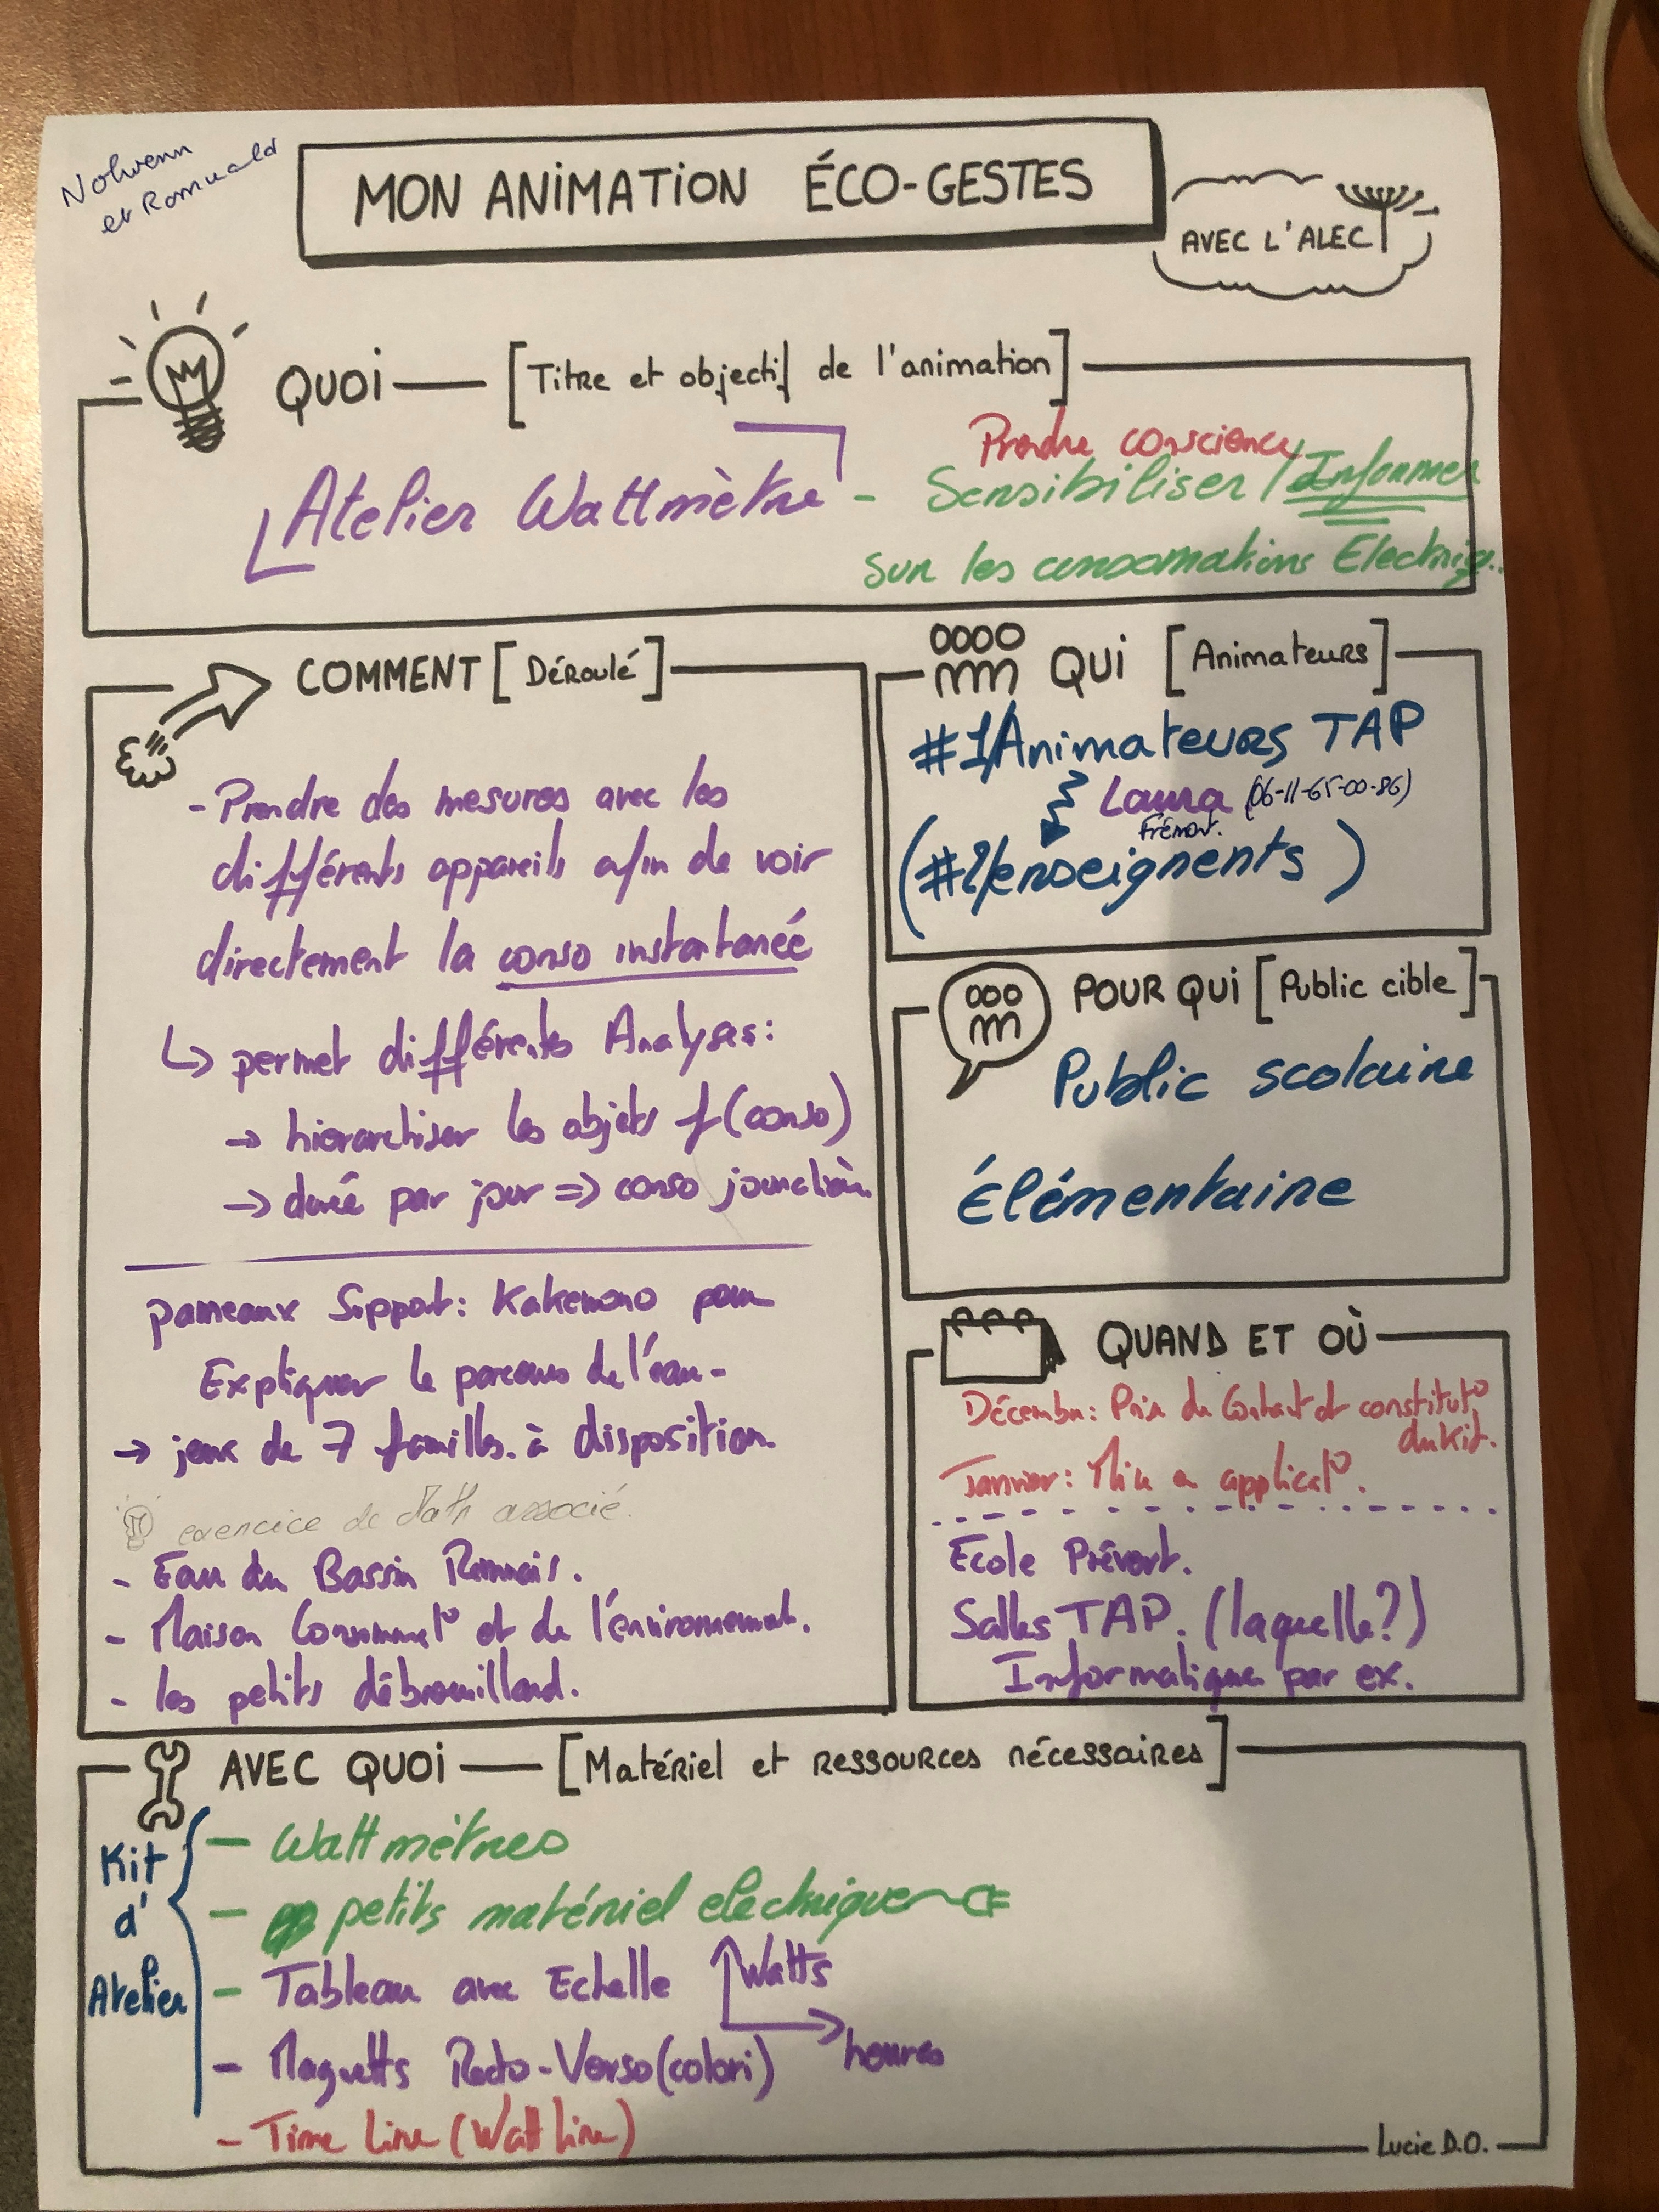 Nolwenn
et Romuald
MON ANIMATION ÉCO-GESTES
AVEC L'ALEC
QUOI — [Titre et objectif de l'animation]
Prendre conscience
Atelier Wattmètre - Sensibiliser / Informer
sur les consomations Electriq..
COMMENT [Déroulé]
- Prendre des mesures avec les
différents appareils afin de voir
directement la conso instantanéé
↳ permet différentes Analyses:
→ hierarchiser les objets f(conso)
→ durée par jour => conso journalièr.
panneaux Support: Kakemono pour
Expliquer le parcours de l'eau-
→ jeux de 7 familles. à disposition.
exercice de Math associé.
- Eau du Bassin Rennais.
- Maison Consommat° et de l'environnement.
- les petits débrouillard.
QUI [Animateurs]
#1/Animateurs TAP
Laura (06-11-65-00-86)
Frémont.
(#2/enseignents)
POUR QUI [Public cible]
Public scolaire
Élémentaire
QUAND ET OÙ
Décembre: Prise de Contact et constitut°
du kit.
Janvier: Mise en applicat°.
Ecole Prévert.
Salles TAP. (laquelle?)
Informatique par ex.
AVEC QUOI — [Matériel et ressources nécessaires]
Kit
d'
Atelier
- Wattmètres
- petits matériel electrique
- Tableau avec Echelle Watts
heures
- Maquetts Recto-Verso (colori)
- Time Line (Watt line)
Lucie D.O.